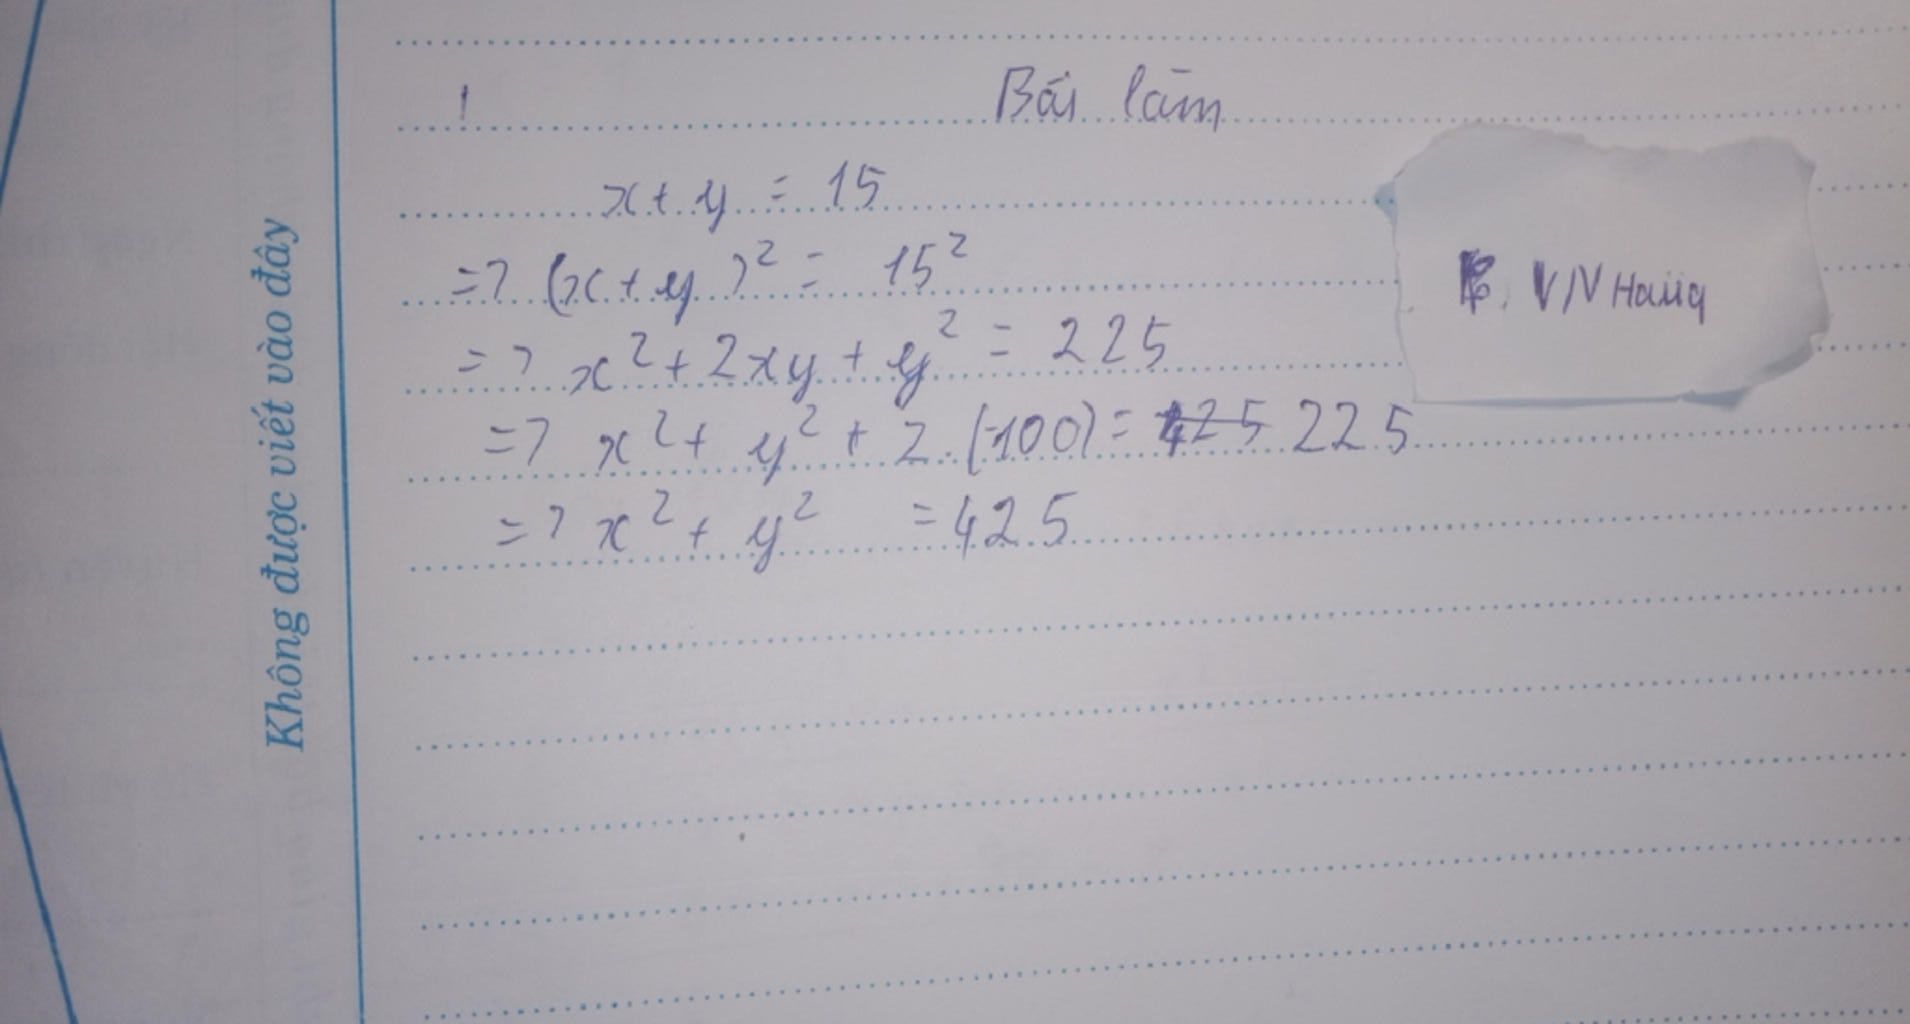 Không được viết vào đây
1 Bài làm
x + y = 15
=> (x + y)² = 15²
=> x² + 2xy + y² = 225
=> x² + y² + 2.(-100) = 225
=> x² + y² = 425
VN